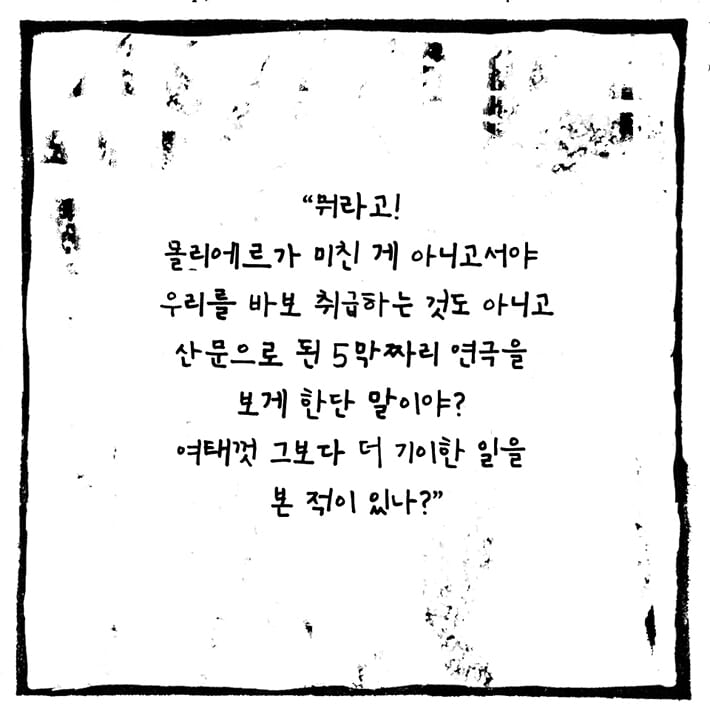 “뭐라고!
몰리에르가 미친 게 아니고서야
우리를 바보 취급하는 것도 아니고
산문으로 된 5막짜리 연극을
보게 한단 말이야?
여태껏 그보다 더 기이한 일을
본 적이 있나?”